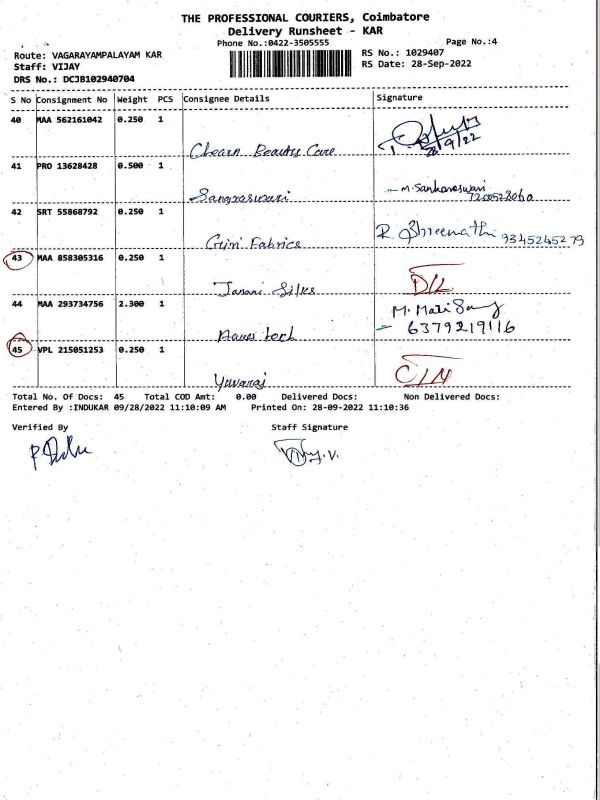 THE PROFESSIONAL COURIERS, Coimbatore
Delivery Runsheet - KAR
Phone No.:0422-3505555
Page No.:4
Route: VAGARAYAMPALAYAM KAR
RS No.: 1029407
Staff: VIJAY
RS Date: 28-Sep-2022
DRS No.: DCJB102940704
S No Consignment No Weight PCS Consignee Details Signature
40 MAA 562161042 0.250 1
Beauty Care
28/9/22
41 PRO 13628428 0.500 1
M. Sankareswari
42 SRT 55868792 0.250 1
Fabrics
R. 9345245279
43 MAA 858305316 0.250 1
Janani Silks D/L
44 MAA 293734756 2.300 1
tech
M.
6379219116
45 VPL 215051253 0.250 1
Yuvaraj
Total No. Of Docs: 45 Total COD Amt: 0.00 Delivered Docs: Non Delivered Docs:
Entered By :INDUKAR 09/28/2022 11:10:09 AM Printed On: 28-09-2022 11:10:36
Verified By Staff Signature